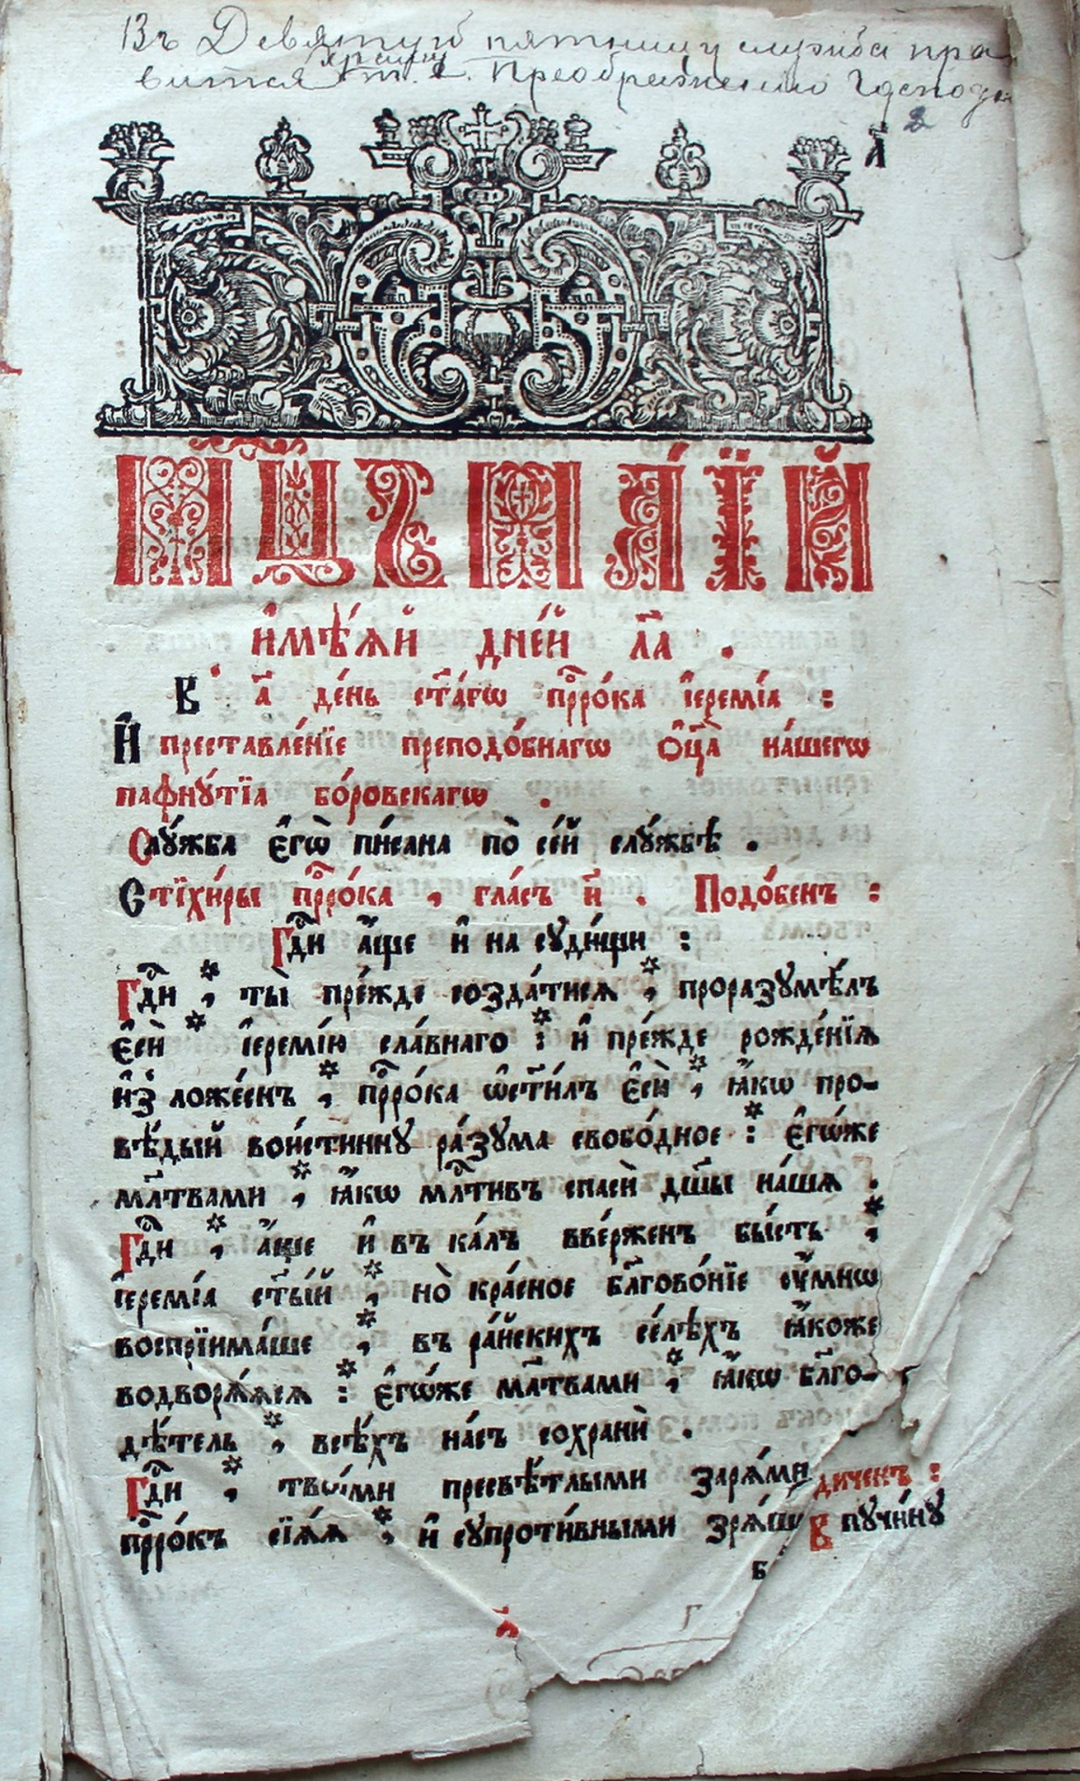 Въ Девятую пятницу служба пра
вится Преображению Господн
2
а҃
МЦСЪ МАЇЙ
и҆мѣ́ѧй дне́й л҃а .
В' а҃ де́нь ст҃а́гѡ прⷪ҇ро́ка і҆еремі́а :
И҆ преставле́нїе преподо́бнагѡ ѻ҆ц҃а̀ на́шегѡ
пафнꙋ́тїа бо́ровскагѡ .
Слꙋ́жба є҆гѡ̀ пи́сана по̀ се́й слꙋ́жбѣ .
Стїхи́ры прⷪ҇ро́ка , гла́съ и҃ . Подо́бенъ :
Гдⷭ҇и а҆́ще и҆ на сꙋди́щи :
Гдⷭ҇и * , ты̀ пре́жде созда́тисѧ * , проразꙋмѣ́лъ
є҆сѝ * і҆еремі́ю сла́внаго * : и҆ пре́жде рожде́нїѧ
и҆з̾ ложе́снъ * , прⷪ҇ро́ка ѡ҆ст҃и́лъ є҆сѝ * , ꙗ҆́кѡ про-
вѣ́дый вои́стиннꙋ ра́зꙋма свобо́дное * : є҆гѡ́же
мл҃твами * , ꙗ҆́кѡ млⷭ҇тивъ спасѝ дш҃ы на́шѧ .
Гдⷭ҇и * , а҆́ще и҆ въ ка́лъ вве́рженъ бы́сть * ,
і҆еремі́а ст҃ы́й * , но̀ кра́сное бл҃гово́нїе ᲂу҆́мнѡ
воспрїима́ше * , въ ра́йскихъ се́лѣхъ ꙗ҆́коже
водворѧ́ѧсѧ * : є҆гѡ́же мл҃твами * , ꙗ҆́кѡ бл҃го-
дѣ́тель * , всѣ́хъ на́съ сохранѝ .
Гдⷭ҇и * , твои́ми пресвѣ́тлыми зарѧ́ми
прⷪ҇ро́къ сїѧ́ѧ * , и҆ сꙋпроти́вными зрѧ́ш
диченъ :
в пꙋчи́нꙋ
б